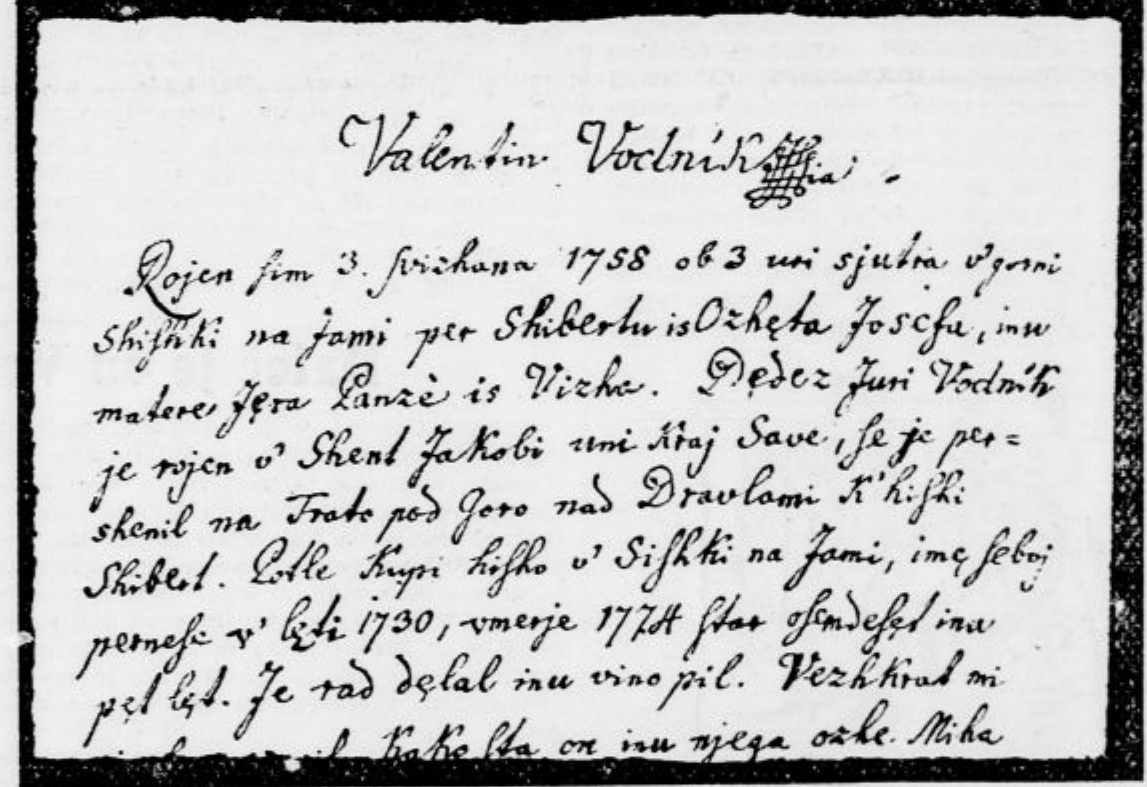 Valentin Vodnik
Rojen ſim 3. ſvizhana 1758 ob 3 uri sjutra v' gorni
Shiſhki na Jami per Shibertu is Ozhęta Joseſa, inu
matere Jęra Panzè is Vizha. Dędez Juri Vodnik
je rojen v' Shent Jakobi uni Kraj Save, ſe je per=
shenil na Trato pod Goro nad Dravlami K' hiſhi
Shibert. Potle Kupi hiſho v' Siſhki na Jami, imę ſeboj
perneſe v' lęti 1730, vmerje 1774 ſtar oſemdeſęt inu
pęt lęt. Je rad dęlal inu vino pil. Vezhkrat mi
Kako ſta on inu njega ozhe Miha